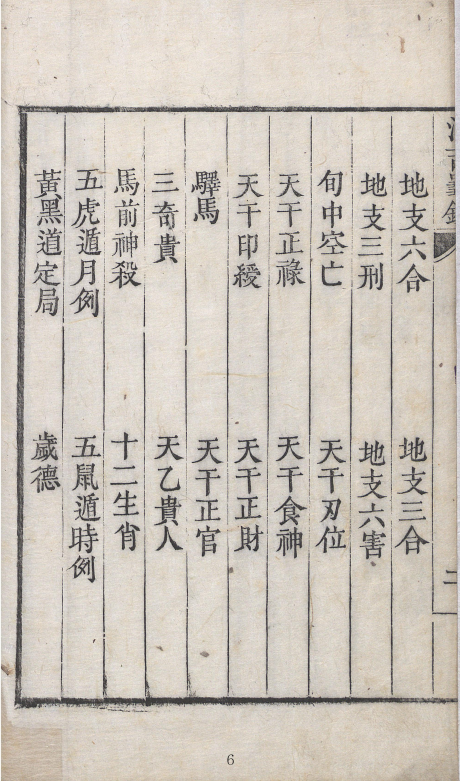 地支六合 地支三合
地支三刑 地支六害
旬中空亡 天干刃位
天干正祿 天干食神
天干印綬 天干正財
驛馬 天干正官
三奇貴 天乙貴人
馬前神殺 十二生肖
五虎遁月例 五鼠遁時例
黃黑道定局 歲德
6